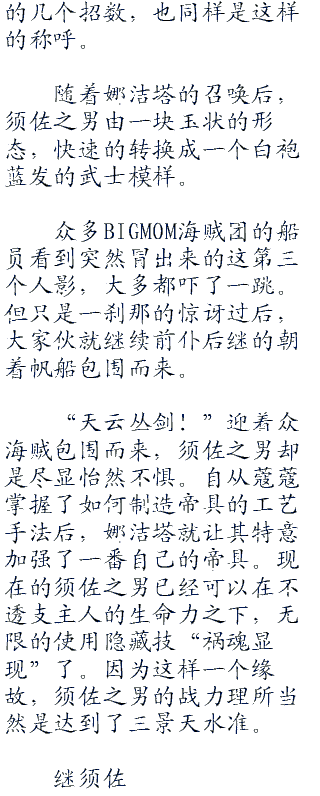 的几个招数，也同样是这样
的称呼。
随着娜洁塔的召唤后，
须佐之男由一块玉状的形
态，快速的转换成一个白袍
蓝发的武士模样。
众多BIGMOM海贼团的船
员看到突然冒出来的这第三
个人影，大多都吓了一跳。
但只是一刹那的惊讶过后，
大家伙就继续前仆后继的朝
着帆船包围而来。
“天云丛剑！”迎着众
海贼包围而来，须佐之男却
是尽显怡然不惧。自从蔻蔻
掌握了如何制造帝具的工艺
手法后，娜洁塔就让其特意
加强了一番自己的帝具。现
在的须佐之男已经可以在不
透支主人的生命力之下，无
限的使用隐藏技“祸魂显
现”了。因为这样一个缘
故，须佐之男的战力理所当
然是达到了三景天水准。
继须佐